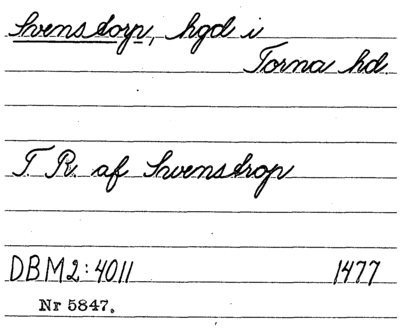 Svenstorp, hgd i
Torna hd.
T. R. af Swenstrop
DBM2:4011 1477
Nr 5847.